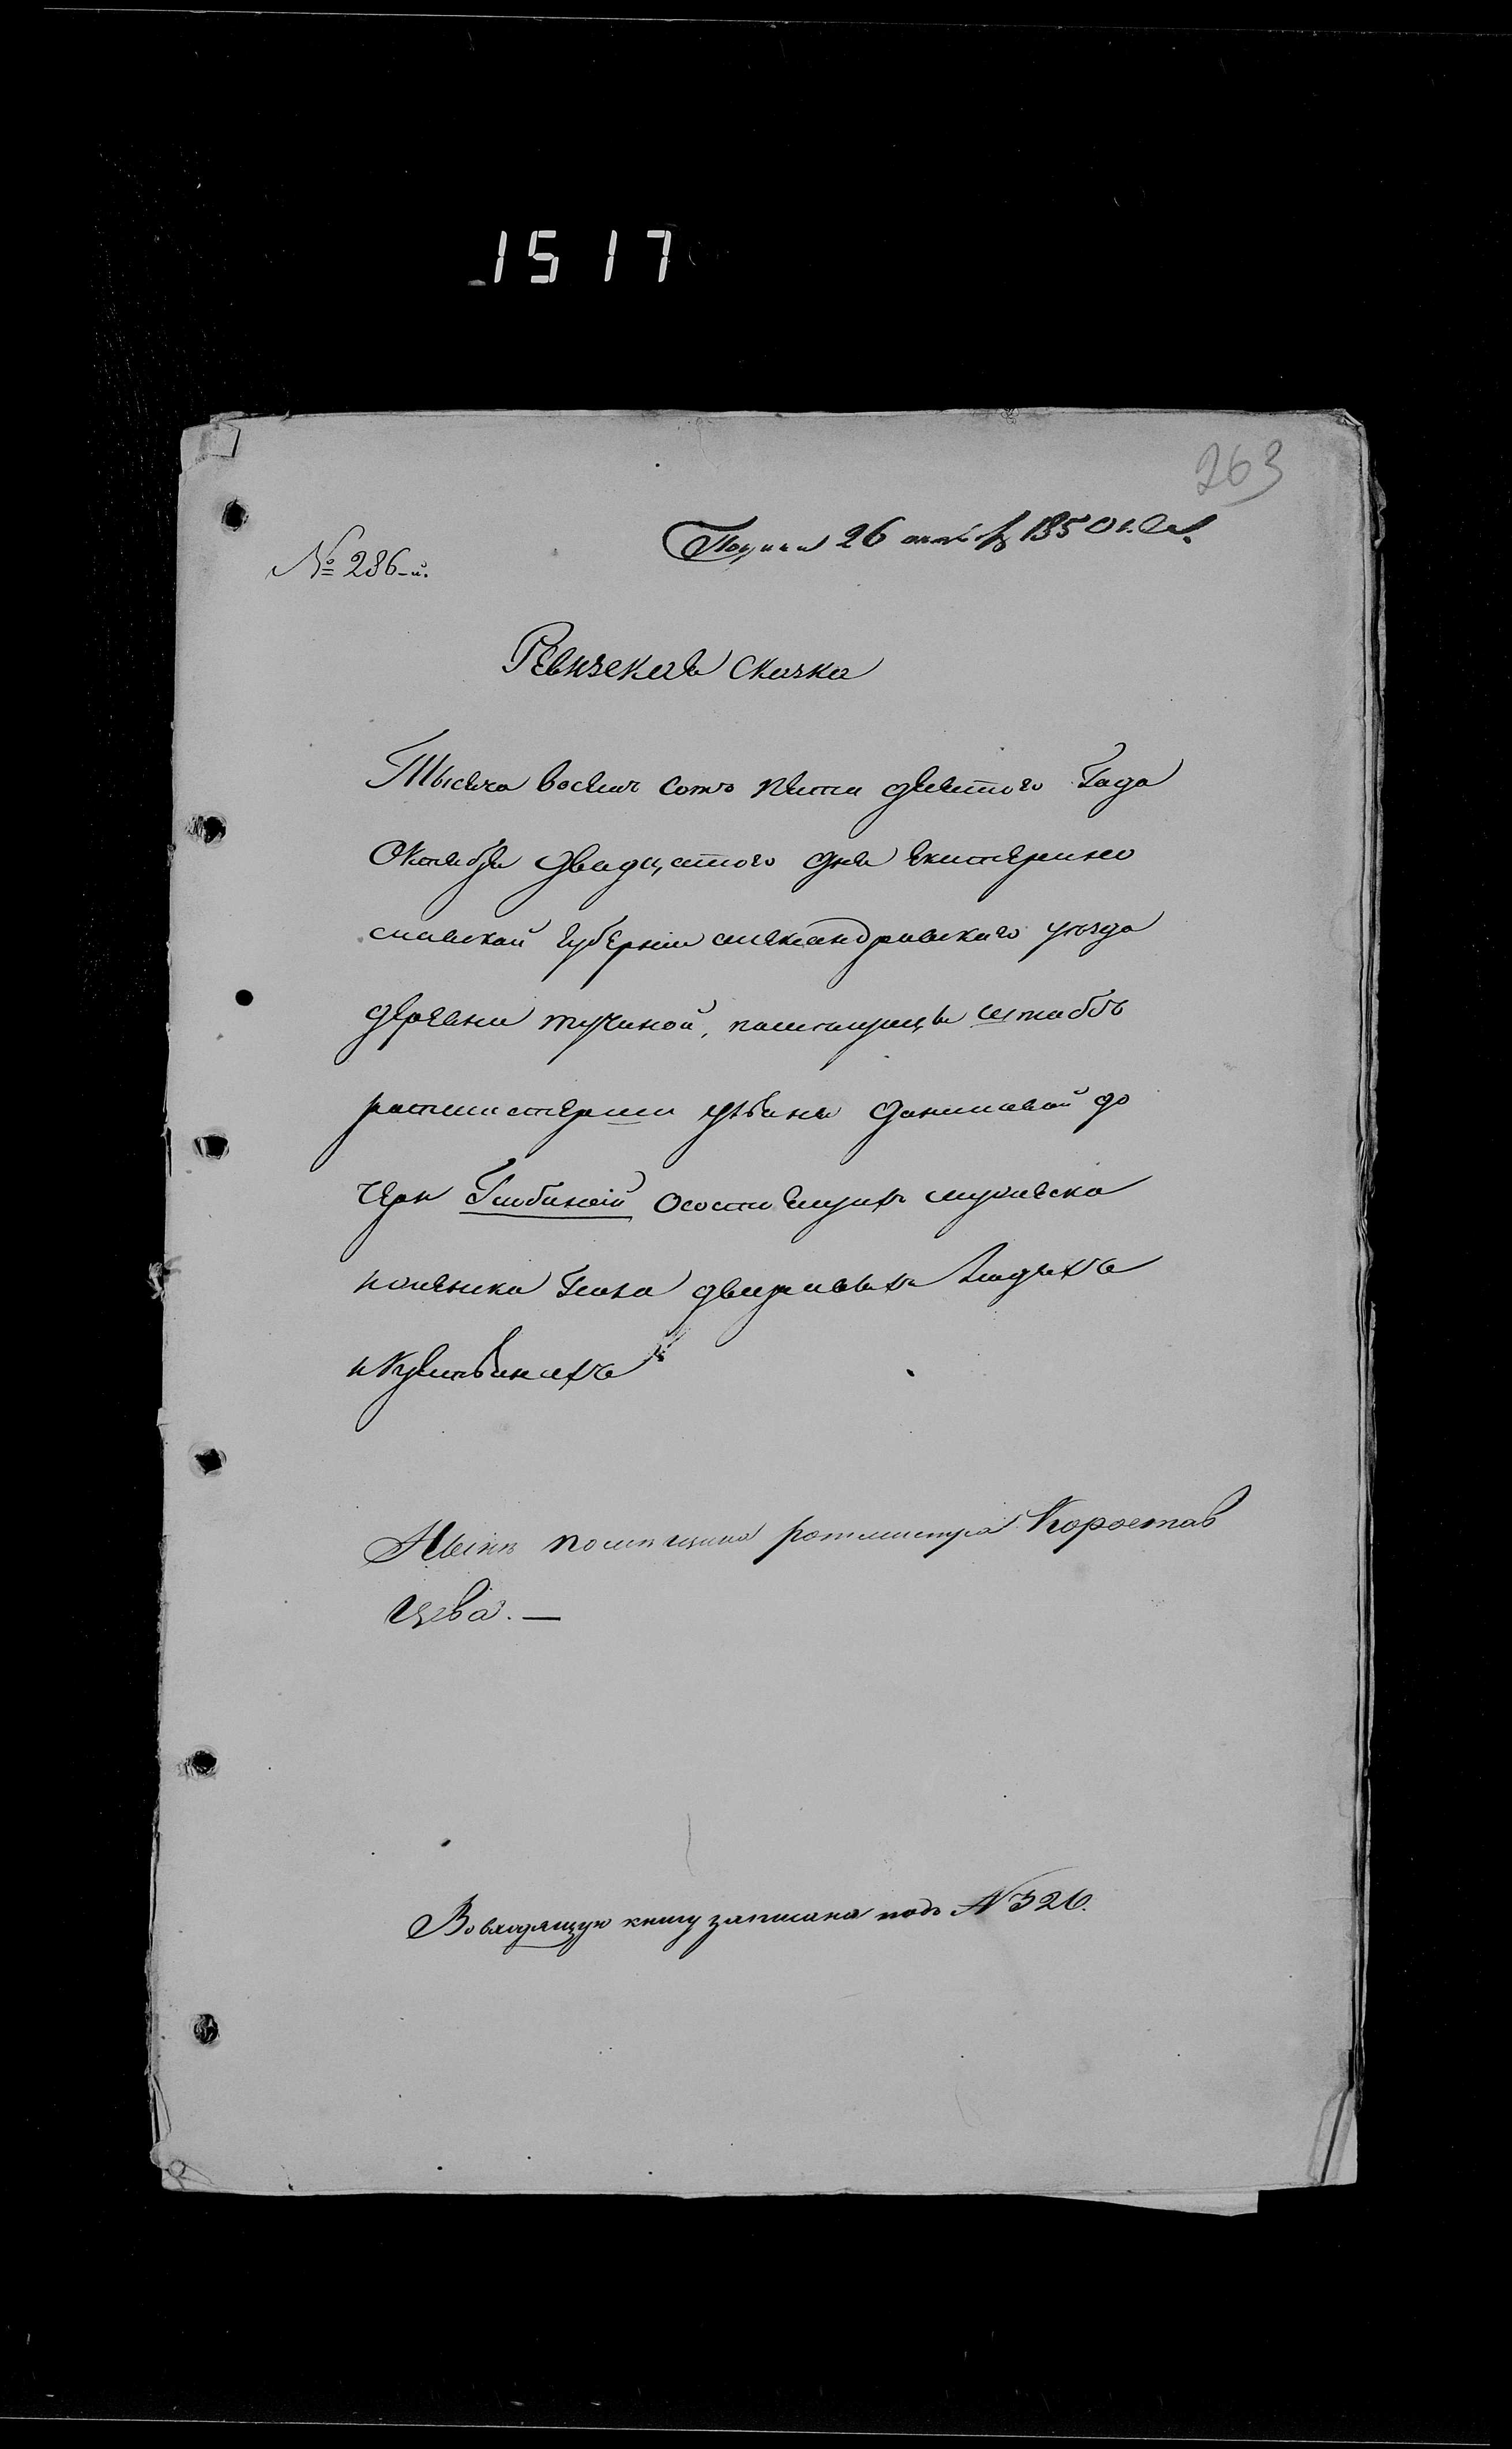 1517
263
№ 286-й.
26 1850 г.
Ревизская сказка
Тысяча восемь сотъ пяти десятого Года
Октября двадцатого дня екатерино
славской губернии александровского уезда
деревни помещицы штабъ
ротмистерши данииловой до
чери о состоящихъ мужеска
и женска пола дворовыхъ людяхъ
и крестьянахъ
Нынѣ помѣщика ротмистра Коростов
цева. —
Во входящую книгу записана подъ N 326.